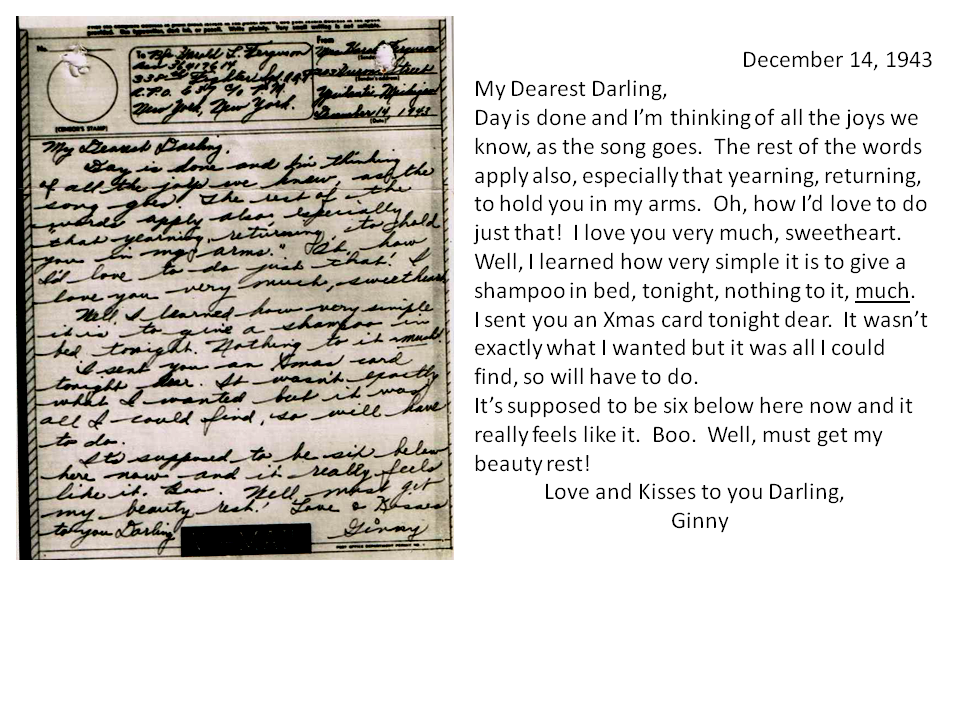 No.
(CENSOR'S STAMP)
To Pfc. Harold L. Ferguson
36417614
338th Fighter Sq.
A.P.O. 637 c/o P.M.
New York, New York.
From
Mrs. Harold Ferguson
(Sender's name)
Street
(Sender's address)
Ypsilanti Michigan
December 14, 1943
(Date)
My Dearest Darling,
Day is done and I'm thinking
of all the joys we know, as the
song goes. The rest of the
words apply also, especially
"that yearning, returning, to hold
you in my arms." Oh, how
I'd love to do just that! I
love you very much, sweetheart.
Well I learned how very simple
it is to give a shampoo in
bed tonight. Nothing to it much.
I sent you an Xmas card
tonight dear. It wasn't exactly
what I wanted but it was
all I could find, so will have
to do.
It's supposed to be six below
here now and it really feels
like it. Boo. Well, must get
my beauty rest! Love & Kisses
to you Darling
Ginny
POST OFFICE DEPARTMENT PERMIT NO.
December 14, 1943
My Dearest Darling,
Day is done and I’m thinking of all the joys we
know, as the song goes.  The rest of the words
apply also, especially that yearning, returning,
to hold you in my arms.  Oh, how I’d love to do
just that!  I love you very much, sweetheart.
Well, I learned how very simple it is to give a
shampoo in bed, tonight, nothing to it, much.
I sent you an Xmas card tonight dear.  It wasn’t
exactly what I wanted but it was all I could
find, so will have to do.
It’s supposed to be six below here now and it
really feels like it.  Boo.  Well, must get my
beauty rest!
Love and Kisses to you Darling,
Ginny